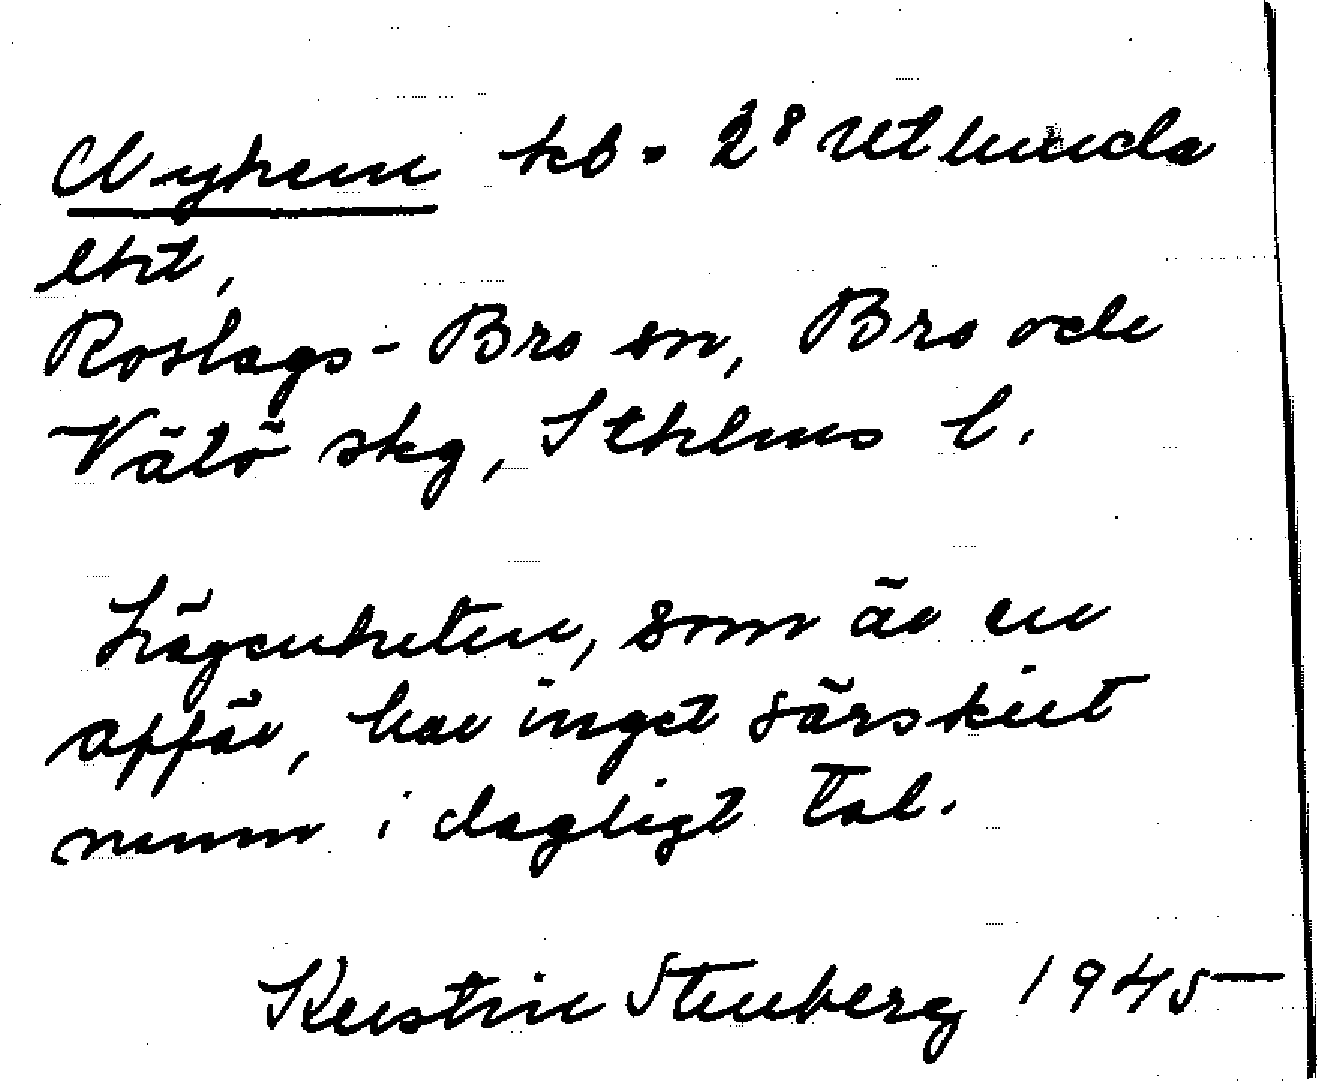 Nyhem kb. 2⁸ Utlunda
ekt,
Roslags-Bro sn, Bro och
Vätö skg, Sthlms l.
Lägenheten, som är en
affär, har inget särskilt
namn i dagligt tal.
Kerstin Stenberg 1945